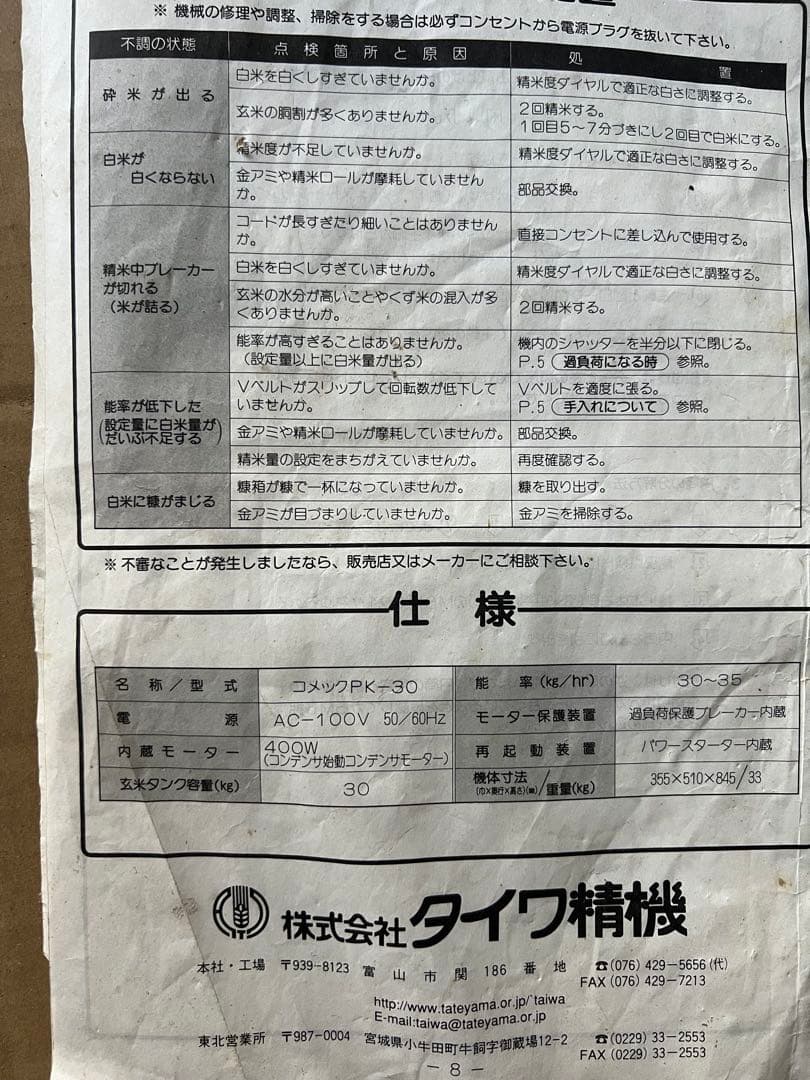 ※ 機械の修理や調整、掃除をする場合は必ずコンセントから電源プラグを抜いて下さい。
不調の状態 点検箇所と原因 処置
砕米が出る 白米を白くしすぎていませんか。 精米度ダイヤルで適正な白さに調整する。
玄米の胴割が多くありませんか。 2回精米する。
1回目5～7分づきにし2回目で白米にする。
白米が
白くならない
精米度が不足していませんか。 精米度ダイヤルで適正な白さに調整する。
金アミや精米ロールが摩耗していません
か。
部品交換。
精米中ブレーカー
が切れる
(米が詰る)
コードが長すぎたり細いことはありません
か。
直接コンセントに差し込んで使用する。
白米を白くしすぎていませんか。 精米度ダイヤルで適正な白さに調整する。
玄米の水分が高いことやくず米の混入が多
くありませんか。
2回精米する。
能率が高すぎることはありませんか。
(設定量以上に白米量が出る)
機内のシャッターを半分以下に閉じる。
P.5 (過負荷になる時) 参照。
能率が低下した
(設定量に白米量が
だいぶ不足する)
Vベルトがスリップして回転数が低下して
いませんか。
Vベルトを適度に張る。
P.5 (手入れについて) 参照。
金アミや精米ロールが摩耗していませんか。 部品交換。
精米量の設定をまちがえていませんか。 再度確認する。
白米に糠がまじる 糠箱が糠で一杯になっていませんか。 糠を取り出す。
金アミが目づまりしていませんか。 金アミを掃除する。
※ 不審なことが発生しましたなら、販売店又はメーカーにご相談下さい。
仕様
名称/型式 コメックPK-30 能率(kg/hr) 30～35
電源 AC-100V 50/60Hz モーター保護装置 過負荷保護ブレーカー内蔵
内蔵モーター 400W
(コンデンサ始動コンデンサモーター)
再起動装置 パワースターター内蔵
玄米タンク容量(kg) 30 機体寸法
(巾×奥行×高さ)(㎜)/重量(kg)
355×510×845/33
株式会社タイワ精機
本社・工場 〒939-8123 富山市関186番地 ☎(076) 429-5656 (代)
FAX (076) 429-7213
http://www.tateyama.or.jp/˜taiwa
E-mail:taiwa@tateyama.or.jp
東北営業所 〒987-0004 宮城県小牛田町牛飼字御蔵場12-2 ☎(0229) 33-2553
FAX (0229) 33-2553
－8－